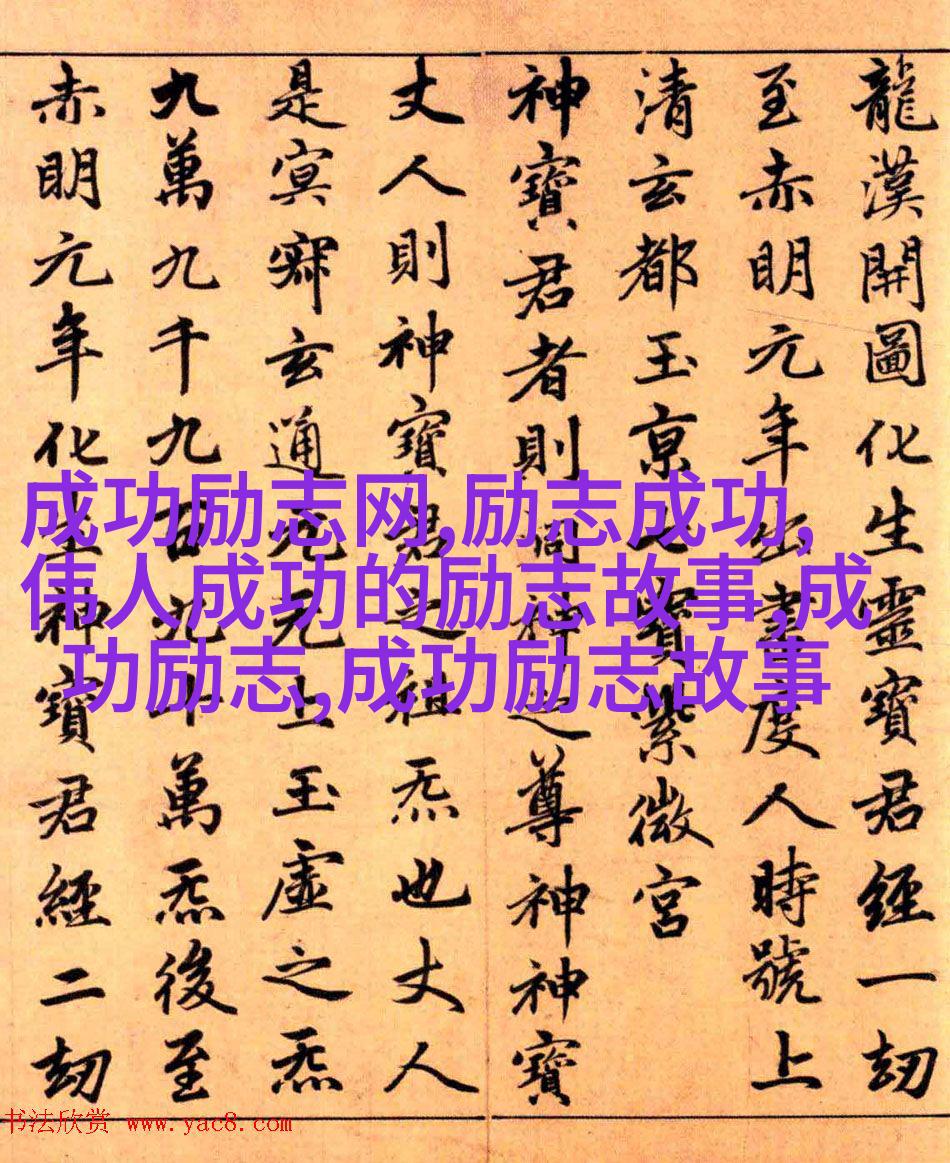 龍漢開圖化生靈寶君經一劫
至赤明元年出書度人時號上
清玄都玉京七寶紫微宮
神寶君者則洞神之尊神神寶
丈人則神寶君之祖炁也丈人
是冥寂玄通元无上玉虛之炁
九萬九千九百九十萬炁後至
赤明元年化生神寶君經二劫
成功励志网,励志成功,
伟人成功的励志故事,成
功励志,成功励志故事
书法欣赏 www.yac8.com